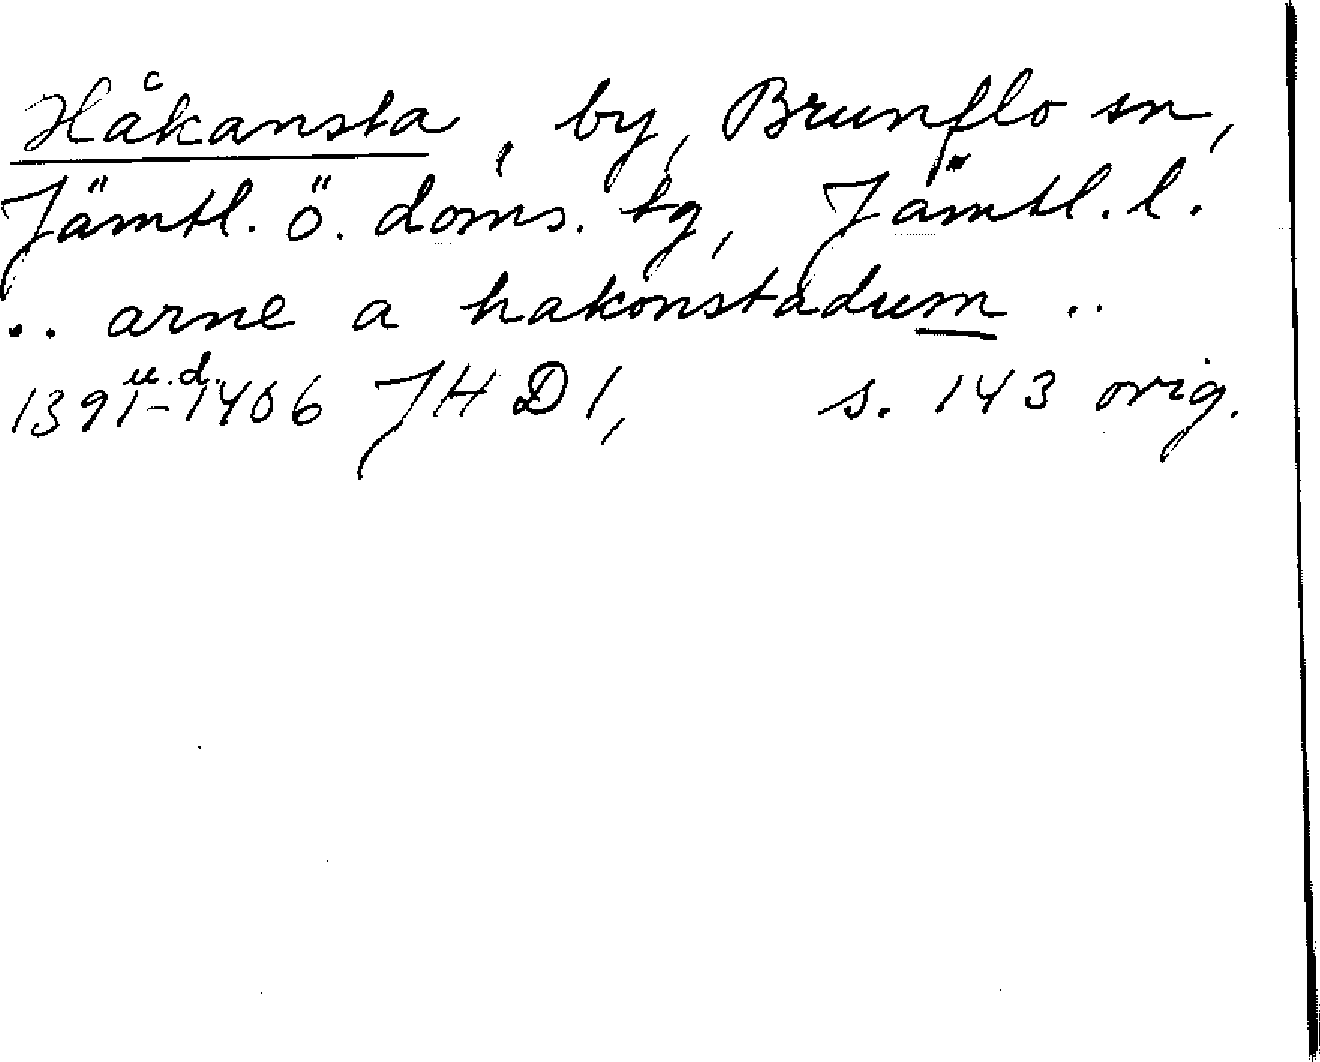 Håkansta, by, Brunflo sn,
Jämtl. ö. doms. tg, Jämtl. l.
.. arne a hakonstadum ..
u.d.
1391-1406 JHD 1, s. 143 orig.